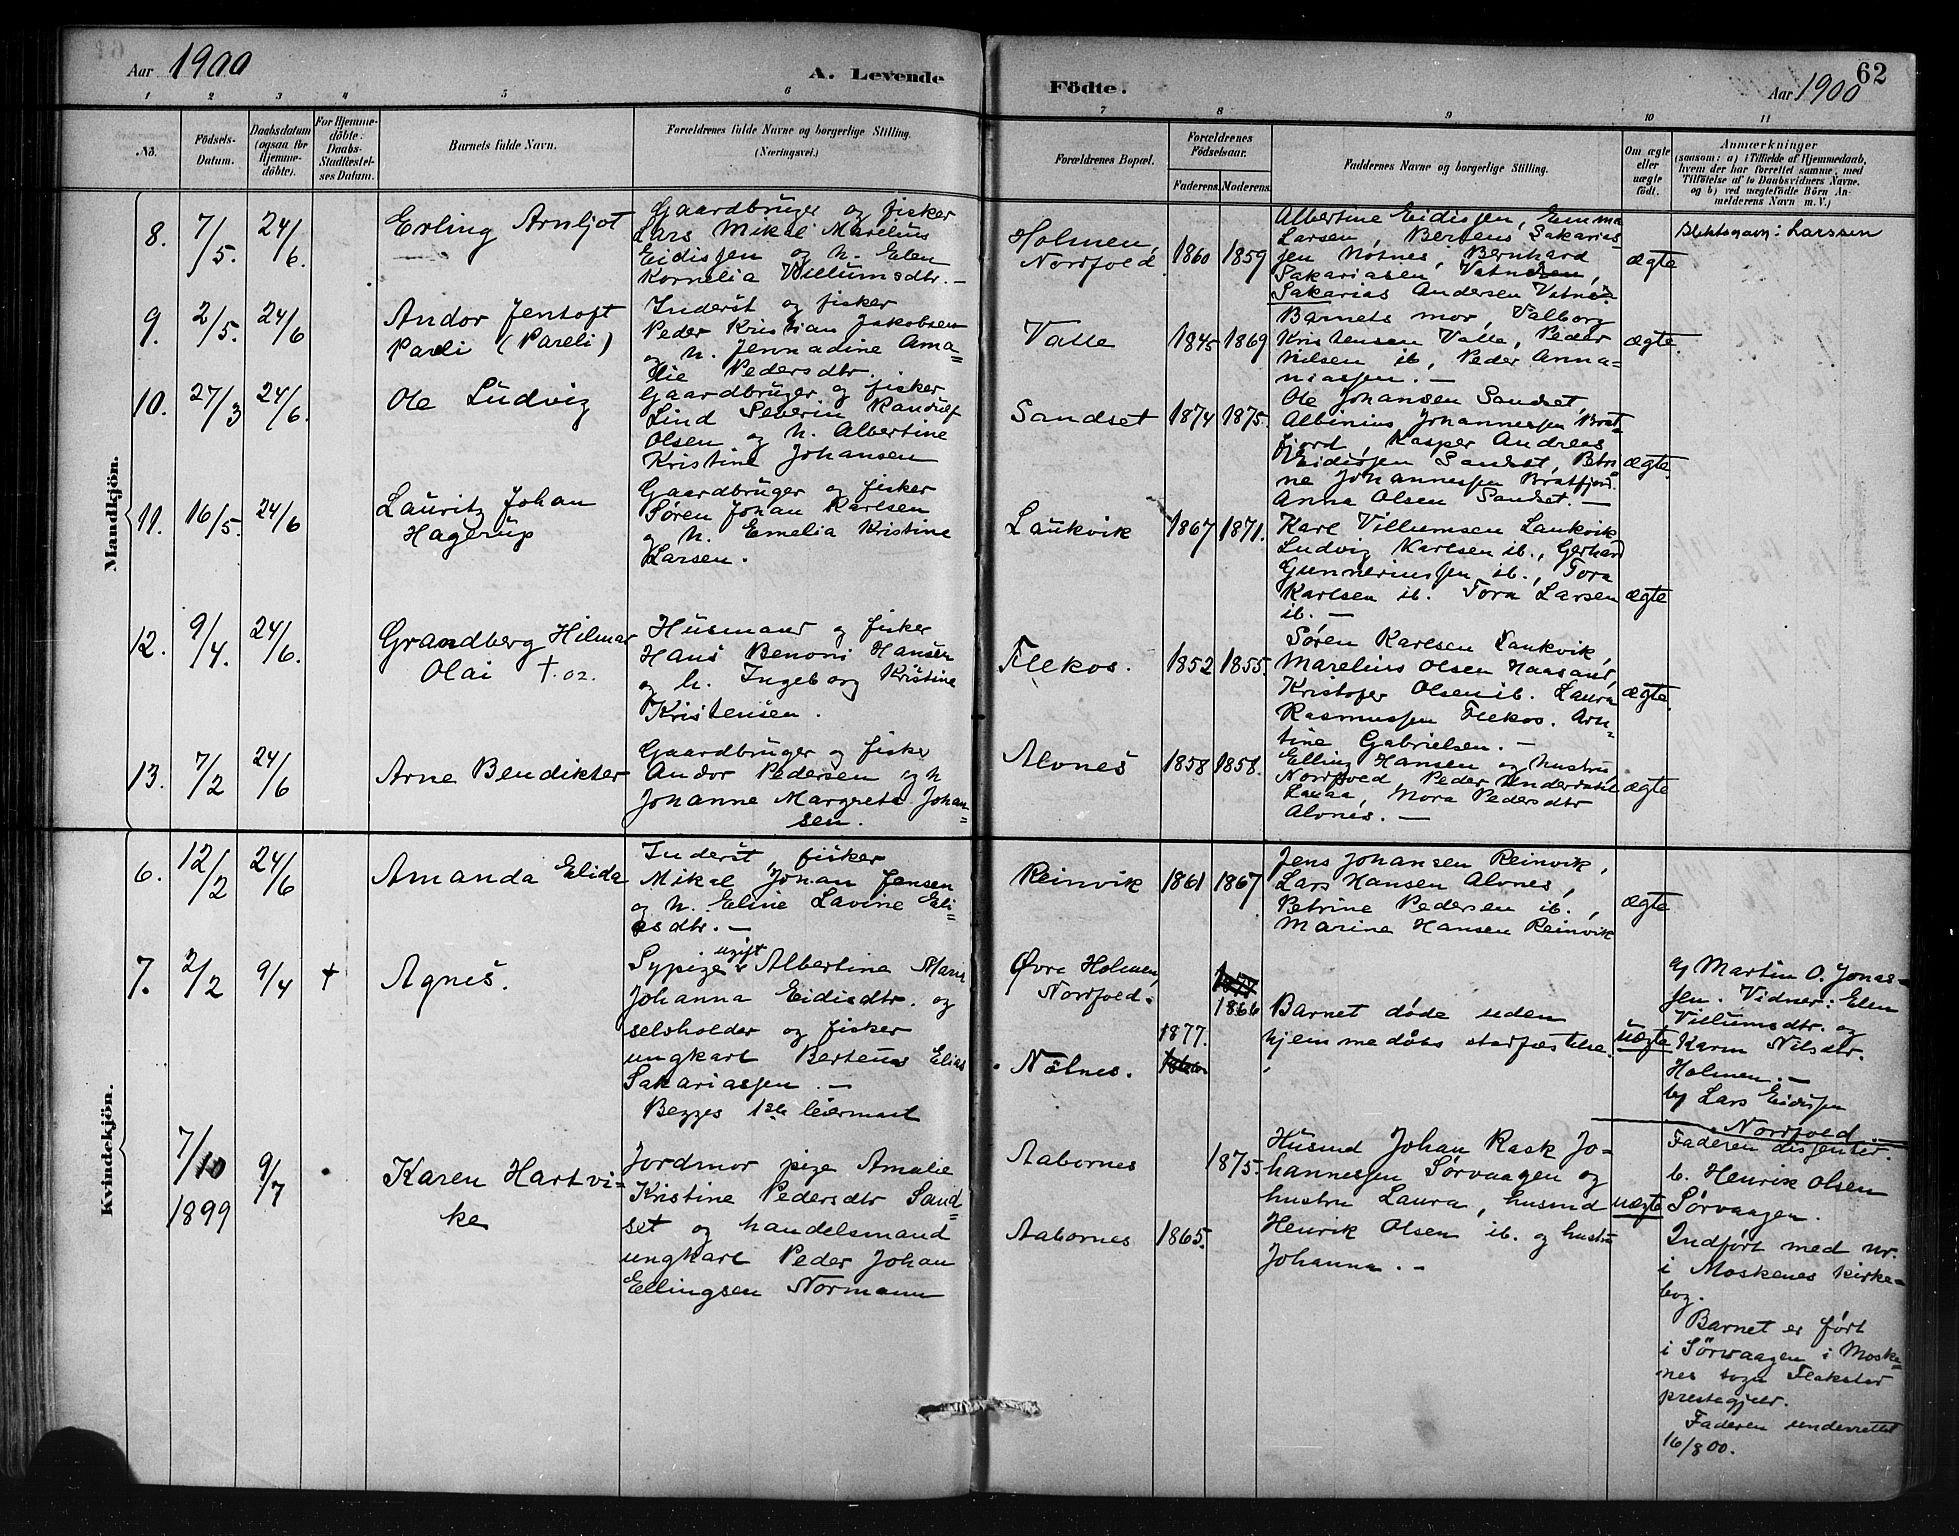 Aar 1900
A. Levende
Fødte.
62
Aar 1900
1 2 3 4 5 6 7 8 9 10 11
No.
Födsels-
Datum.
Daabsdatum
(ogsaa for
Hjemme-
döbte).
For Hjemme-
döbte:
Daabs-
Stadfæstel-
ses Datum.
Barnets fulde Navn.
Forældrenes fulde Navne og borgerlige Stilling.
(Næringsvei.)
Forældrenes Bopæl.
Forældrenes
Födselsaar.
Faderens. Moderens.
Faddernes Navne og borgerlige Stilling.
Om ægte
eller
uægte
födt.
Anmærkninger
(saasom: a) i Tilfælde af Hjemmedaab,
hvem der har forrettet samme, med
Tilföielse af to Daabsvidners Navne,
og b) ved uægtefödte Börn An-
melderens Navn m. V.)
Mandkjön.
8. 7/5. 24/6.
Erling Arnljot
Gaardbruger og fisker
Lars Mikal Marelius
Eidissen og h. Elen
Kornelia Villumsdtr. —
Holmen,
Nordfold
1860 1859
Albertine Eidissen, Emma
Larsen, Berteus Sakarias-
sen Nötnes, Bernhard
Sakariasen Vatnesen,
Sakarias Andersen Vatnes.
ægte
Slektsnavn: Larssen
9. 2/5. 24/6
Andor Jentoft
Pareli (Pareli)
Inderst og fisker
Peder Kristian Jakobsen
og h. Jennadine Ama-
lie Pedersdtr.
Valle
1845 1869
Barnets mor, Valborg
Kristensen Valle, Peder
Nilsen ib, Peder Anna-
niassen. —
ægte.
10. 27/3 24/6.
Ole Ludvig
Gaardbruger og fisker
Lind Severin Randulf
Olsen og h. Albertine
Kristine Johansen
Sandset
1874 1875.
Ole Johansen Sandset,
Albinius Johannessen Brat-
fjord, Kasper Andreas
Eidissen Sandset, Petri-
ne Johannessen Bratfjord.
Anna Olsen Sandset. —
ægte.
11. 16/5. 24/6
Lauritz Johan
Hagerup
Gaardbruger og fisker
Søren Johan Karlsen
og h. Emelia Kristine
Larsen.
Laukvik
1867 1871.
Karl Villumsen Laukvik
Ludvig Karlsen ib., Gerhard
Gunneriussen ib., Tora
Karlsen ib. Tora Larsen
ib. —
ægte
12. 9/4. 24/6.
Grandberg Hilmar
Olai † 02.
Husmand og fisker
Hans Benoni Hansen
og h. Ingeborg Kristine
Kristensen.
Flekos.
1852 1855.
Søren Karlsen Laukvik,
Marelius Olsen Haasand,
Kristofer Olsen ib. Laura
Rasmussen Flekos. Arn-
tine Gabrielsen. —
ægte.
13. 7/2 24/6
Arne Bendikter
Gaardbruger og fisker
Andor Pedersen og h
Johanne Margrete Johan-
sen.
Alvnes
1858 1858.
Elling Hansen og hustru
Nordfold, Peder
Mora Pedersdtr
Alvnes. —
ægte
Kvindekjön.
6. 12/2 24/6
Amanda Elida
Inderst, fisker
Mikal Johan Jensen
og h. Eline Lavine Eli-
asdtr. —
Reinvik
1861 1867
Jens Johansen Reinvik,
Lars Hansen Alvnes,
Petrine Pedersen ib.,
Marine Hansen Reinvik
ægte
7. 2/2 9/4 +
Agnes.
ugift
Sypige Albertine Maria
Johanna Eidisdtr. og
selvholder og fisker
ungkarl Berteus Elias
Sakariassen. —
Begges 1ste leiermaal
Øvre Holmen,
Nordfold.
Nötnes.
1866
1877.
Barnet døde uden
hjemmedåbs stadfæstelse.
uægte
a) Martin O. Jonas-
sen. Vidner: Elen
Villumsdtr. og
Karen Nilsdtr.
Holmen. —
b) Lars Eidissen
Nordfold. —
7/10
1899
9/7
Karen Hartvi-
ke
Jordmor pige Amalie
Kristine Pedersdtr Sand-
set og handelsmand
ungkarl Peder Johan
Ellingsen Normann
Aabornes
Aabornes
1875.
1865.
Husmd Johan Rask Jo-
hannessen Sørvaagen og
hustru Laura, husmd
Henrik Olsen ib. og hustru
Johanna. —
uægte
Faderen dissenter.
b. Henrik Olsen
Sørvaagen.
Indført med nr.
i Moskenes kirke-
bog.
Barnet er født
i Sørvaagen i Moske-
nes sogn Flakstad
prestegjeld.
Faderen underrettet
16/8 00.